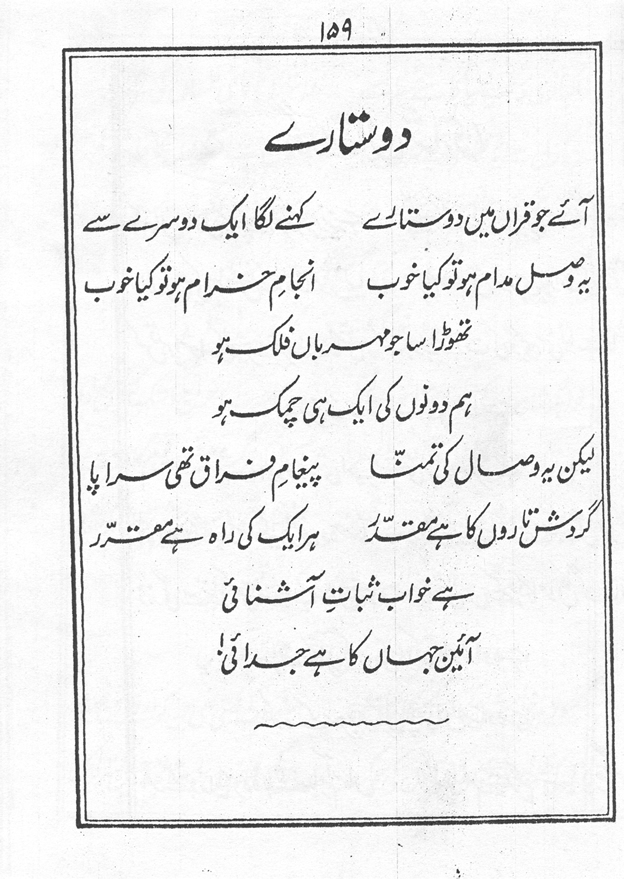 ۱۵۹
دو ستارے
آئے جو قراں میں دو ستارے کہنے لگا ایک دوسرے سے
یہ وصل مدام ہو تو کیا خوب انجامِ خرام ہو تو کیا خوب
تھوڑا سا جو مہرباں فلک ہو
ہم دونوں کی ایک ہی چمک ہو
لیکن یہ وصال کی تمنّا پیغامِ فراق تھی سراپا
گردش تاروں کا ہے مقدّر ہر ایک کی راہ ہے مقرّر
ہے خواب ثباتِ آشنائی
آئین جہاں کا ہے جدائی!